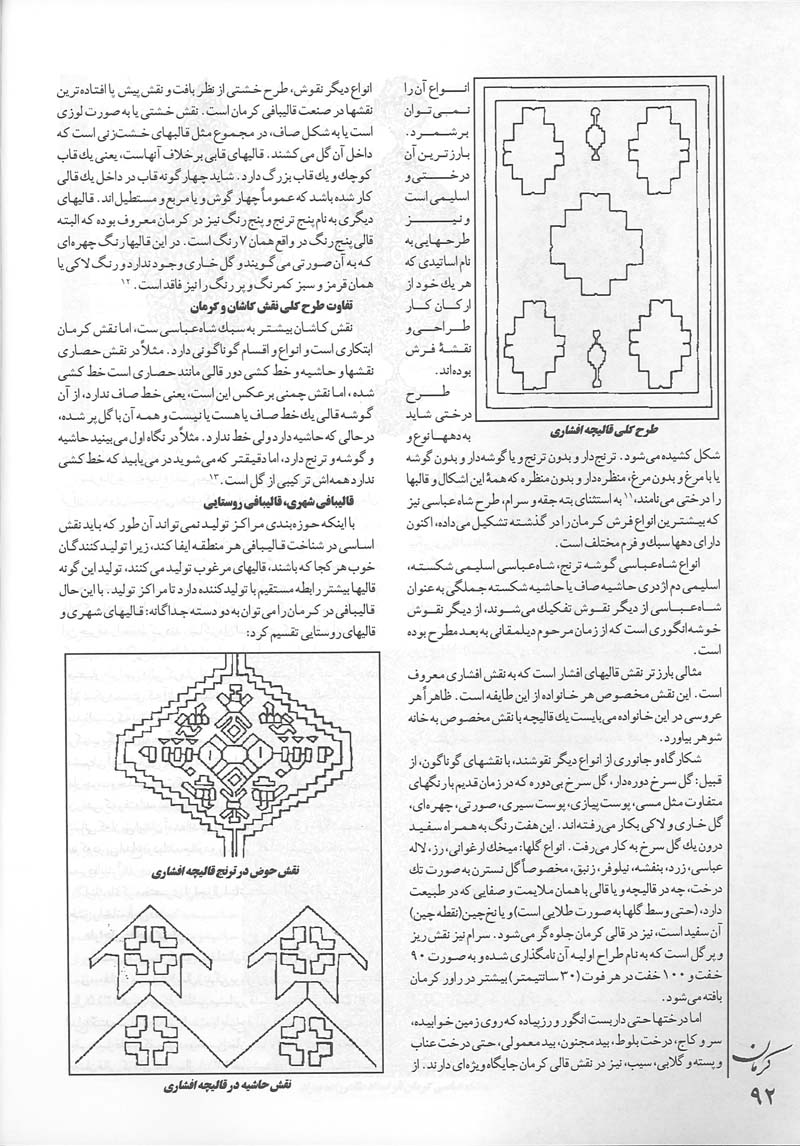 انواع آن را
نمی‌توان
برشمرد.
بارزترین آن
درختی و
اسلیمی است
و نیز
طرحهایی به
نام اساتیدی که
هر یك خود از
ارکان کار
طراحی و
نقشهٔ فرش
بوده‌اند.
طرح
درختی شاید
به دهها نوع و
طرح کلی قالیچه افشاری
شکل کشیده می‌شود. ترنج‌دار و بدون ترنج و یا گوشه‌دار و بدون گوشه
یا با مرغ و بدون مرغ، منظره‌دار و بدون منظره که همهٔ این اشکال و قالبها
را درختی می‌نامند،۱۱ به استثنای بته جقه و سرام، طرح شاه عباسی نیز
که بیشترین انواع فرش کرمان را در گذشته تشکیل می‌داده، اکنون
دارای دهها سبك و فرم مختلف است.
انواع شاه عباسی گوشه ترنج، شاه عباسی اسلیمی شکسته،
اسلیمی دم اژدری حاشیه صاف یا حاشیه شکسته جملگی به عنوان
شاه عباسی از دیگر نقوش تفکیك می‌شوند، از دیگر نقوش
خوشه انگوری است که از زمان مرحوم دیلمقانی به بعد مطرح بوده
است.
مثالی بارزتر نقش قالیهای افشار است که به نقش افشاری معروف
است. این نقش مخصوص هر خانواده از این طایفه است. ظاهراً هر
عروسی در این خانواده می‌بایست یك قالیچه با نقش مخصوص به خانه
شوهر بیاورد.
شکارگاه و جانوری از انواع دیگر نقوشند، با نقشهای گوناگون، از
قبیل: گل سرخ دوره‌دار، گل سرخ بی‌دوره که در زمان قدیم با رنگهای
متفاوت مثل مسی، پوست پیازی، پوست سیری، صورتی، چهره‌ای،
گل خاری و لاکی بکار می‌رفته‌اند. این هفت رنگ به همراه سفید
درون یك گل سرخ به کار می‌رفت. انواع گلها: میخك ارغوانی، رز، لاله
عباسی، زرد، بنفشه، نیلوفر، زنبق، مخصوصاً گل نسترن به صورت تك
درخت، چه در قالیچه و یا قالی با همان ملایمت و صفایی که در طبیعت
دارد، (حتی وسط گلها به صورت طلایی است) و یا نخ‌چین (نقطه چین)
آن سفید است، نیز در قالی کرمان جلوه‌گر می‌شود. سرام نیز نقش ریز
و پر گل است که به نام طراح اولیه آن نامگذاری شده و به صورت ۹۰
خفت و ۱۰۰ خفت در هر فوت (۳۰ سانتیمتر) بیشتر در راور کرمان
بافته می‌شود.
اما درختها حتی داربست انگور و رز پیاده که روی زمین خوابیده،
سرو کاج، درخت بلوط، بید مجنون، بید معمولی، حتی درخت عناب
و پسته و گلابی، سیب، نیز در نقش قالی کرمان جایگاه ویژه‌ای دارند. از
انواع دیگر نقوش، طرح خشتی از نظر بافت و نقش پیش پا افتاده‌ترین
نقشها در صنعت قالیبافی کرمان است. نقش خشتی یا به صورت لوزی
است یا به شکل صاف، در مجموع مثل قالبهای خشت‌زنی است که
داخل آن گل می‌کشند. قالیهای قابی بر خلاف آنهاست، یعنی یك قاب
کوچك و یك قاب بزرگ دارد. شاید چهار گونه قاب در داخل یك قالی
کار شده باشد که عموماً چهار گوش و یا مربع و مستطیل‌اند. قالیهای
دیگری به نام پنج ترنج و پنج رنگ نیز در کرمان معروف بوده که البته
قالی پنج رنگ در واقع همان ۷ رنگ است. در این قالیها رنگ چهره‌ای
که به آن صورتی می‌گویند و گل خاری وجود ندارد و رنگ لاکی یا
همان قرمز و سبز کمرنگ و پر رنگ را نیز فاقد است.۱۲
تفاوت طرح کلی نقش کاشان و کرمان
نقش کاشان بیشتر به سبك شاه عباسی ست، اما نقش کرمان
ابتکاری است و انواع و اقسام گوناگونی دارد. مثلاً در نقش حصاری
نقشها و حاشیه و خط کشی دور قالی مانند حصاری است خط کشی
شده، اما نقش چمنی برعکس این است، یعنی خط صاف ندارد، از آن
گوشه قالی یك خط صاف یا هست یا نیست و همه آن با گل پر شده،
در حالی که حاشیه دارد ولی خط ندارد. مثلاً در نگاه اول می‌بینید حاشیه
و گوشه و ترنج دارد، اما دقیقتر که می‌شوید در می‌یابید که خط کشی
ندارد همه‌اش ترکیبی از گل است.۱۳
قالیبافی شهری، قالیبافی روستایی
با اینکه حوزه‌بندی مراکز تولید نمی‌تواند آن طور که باید نقش
اساسی در شناخت قالیبافی هر منطقه ایفا کند، زیرا تولیدکنندگان
خوب هر کجا که باشند، قالیهای مرغوب تولید می‌کنند، تولید این گونه
قالیها بیشتر رابطه مستقیم با تولیدکننده دارد تا مراکز تولید. با این حال
قالیبافی در کرمان را می‌توان به دو دسته جداگانه: قالیهای شهری و
قالیهای روستایی تقسیم کرد:
نقش حوض در ترنج قالیچه افشاری
نقش حاشیه در قالیچه افشاری
کرمان
۹۲